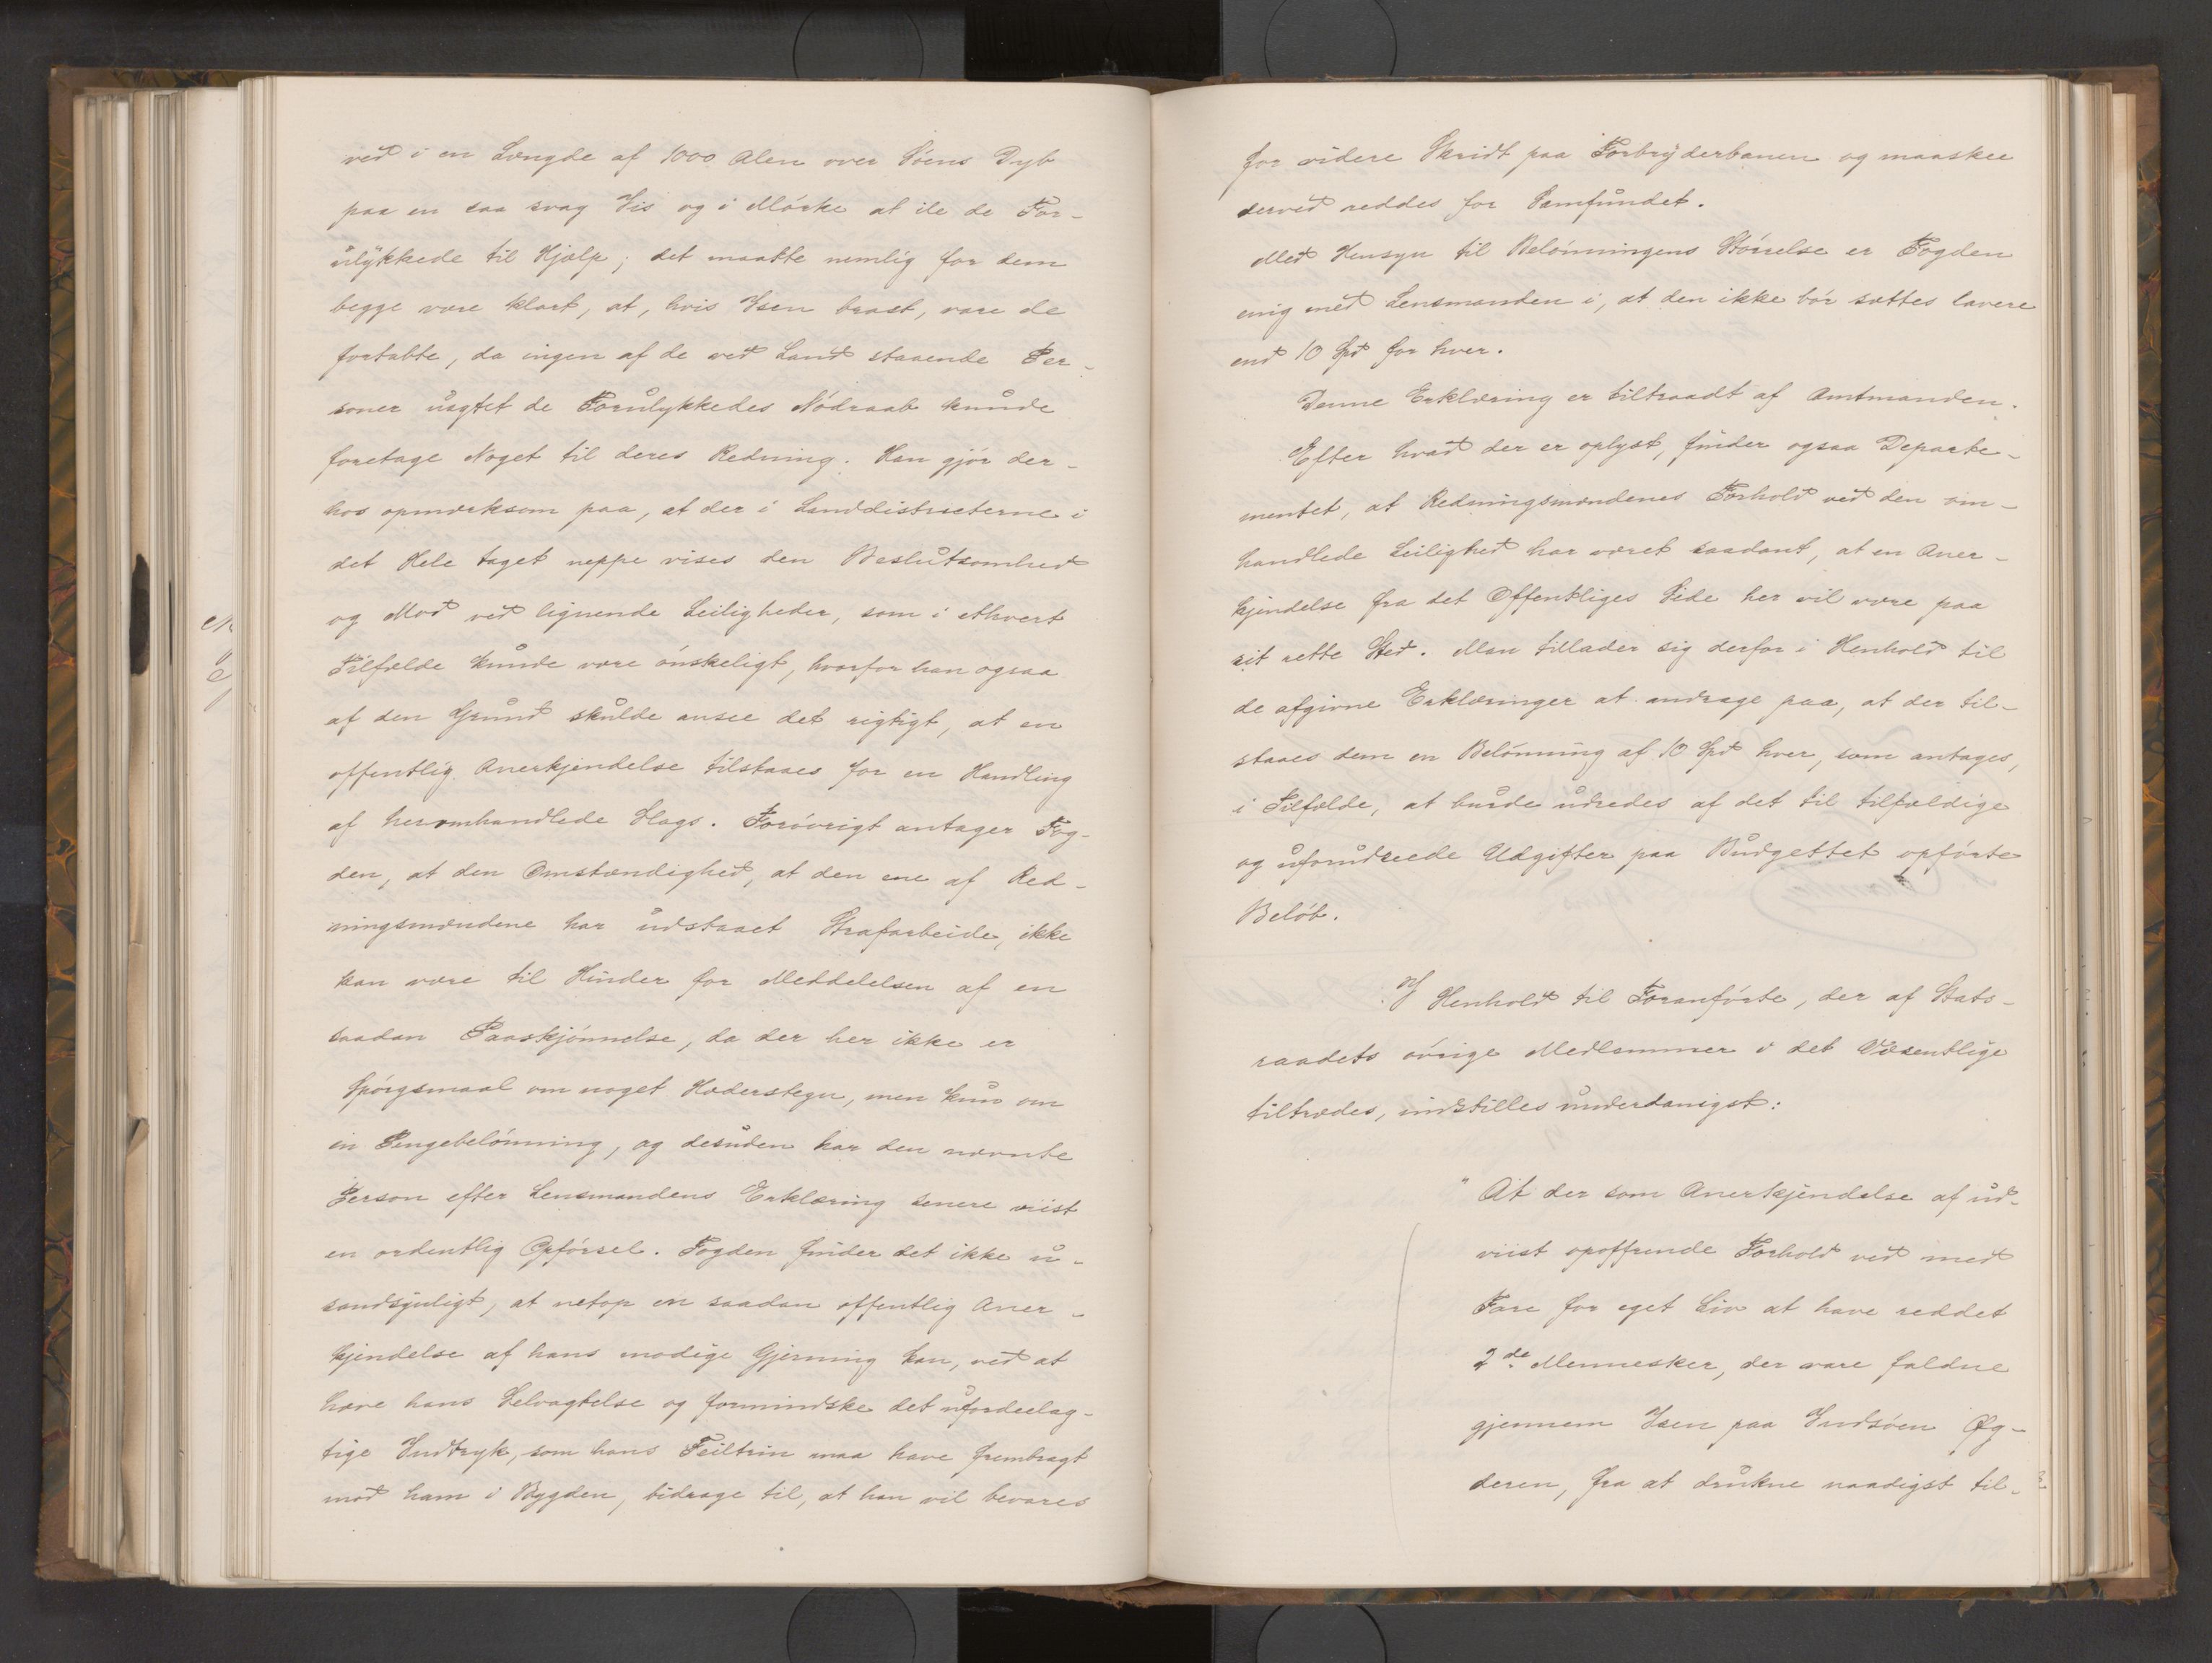 ved i en Længde af 1000 Alen over Søens Dyb
paa en saa svag Iis og i Mørke at ile de For-
ulykkede til Hjælp; det maatte nemlig for dem
begge være klart, at, hvis Isen brast, vare de
fortabte, da ingen af de ved Land staaende Per-
soner uagtet de Forulykkedes Nødraab kunde
foretage Noget til deres Redning. Han gjør der-
hos opmærksom paa, at der i Landdistricterne i
det Hele taget neppe vises den Beslutsomhed
og Mod ved lignende Leiligheder, som i ethvert
Tilfælde kunde være ønskeligt, hvorfor han ogsaa
af den Grund skulde ansee det rigtigt, at en
offentlig Anerkjendelse tilstaaes for en Handling
af heromhandlede Slags. Forøvrigt antager Fog-
den, at den Omstændighed, at den ene af Red-
ningsmændene har udstaaet Strafarbeide, ikke
kan være til Hinder for Meddelelsen af en
saadan Paaskjønnelse, da der her ikke er
Spørgsmaal om noget Hæderstegn, men kun om
en Pengebelønning, og desuden har den nævnte
Person efter Lensmandens Erklæring senere viist
en ordentlig Opførsel. Fogden finder det ikke u-
sandsynligt, at netop en saadan offentlig Aner-
kjendelse af hans modige Gjerning kan, ved at
hæve hans Selvagtelse og formindske det ufordeelag-
tige Indtryk, som hans Feiltrin maa have frembragt
mod ham i Bygden, bidrage til, at han vil bevares
for videre Skridt paa Forbryderbanen og maaskee
derved reddes for Samfundet.
Med Hensyn til Belønningens Størrelse er Fogden
enig med Lensmanden i, at den ikke bør sættes lavere
end 10 Spd for hver.
Denne Erklæring er tiltraadt af Amtmanden.
Efter hvad der er oplyst, finder ogsaa Departe-
mentet, at Redningsmændenes Forhold ved den om-
handlede Leilighed har været saadant, at en Aner-
kjendelse fra det Offentliges Side her vil være paa
sit rette Sted. Man tillader sig derfor i Henhold til
de afgivne Erklæringer at andrage paa, at der til-
staaes dem en Belønning af 10 Spd hver, som antages,
i Tilfælde, at burde udredes af det til tilfældige
og uforudseede Udgifter paa Budgettet opførte
Beløb.
I Henhold til Foranførte, der af Stats-
raadets øvrige Medlemmer i det Væsentlige
tiltrædes, indstilles underdanigst:
"At der som Anerkjendelse af ud-
viist opoffrende Forhold ved med
Fare for eget Liv at have reddet
2de Mennesker, der vare faldne
gjennem Isen paa Indsøen Øg-
deren, fra at drukne naadigst til-